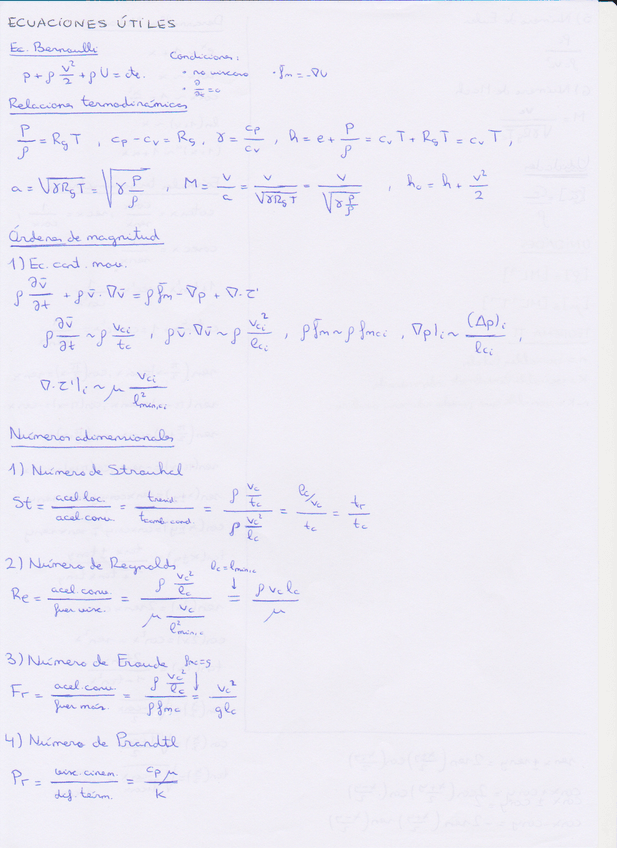 ECUACIONES ÚTILES
Ec. Bernoulli
Condiciones:
p + ρ v²/2 + ρU = cte.
• no viscoso • f̄m = -∇U
• ∂/∂t = 0
Relaciones termodinámicas
P/ρ = RgT , cp - cv = Rg , γ = cp/cv , h = e + P/ρ = cvT + RgT = cvT ,
a = √(γRgT) = √(γ P/ρ) , M = v/c = v/√(γRgT) = v/√(γ P/ρ) , h₀ = h + v²/2
Órdenes de magnitud
1) Ec. cant. mov.
ρ ∂v̄/∂t + ρ v̄·∇v̄ = ρ f̄m - ∇p + ∇·τ'
ρ ∂v̄/∂t ~ ρ vci/tc , ρ v̄·∇v̄ ~ ρ vci²/lci , ρ f̄m ~ ρ fmci , ∇p|i ~ (Δp)i/lci ,
∇·τ'|i ~ μ vci/l²mín,ci
Números adimensionales
1) Número de Strouhal
St = acel. loc./acel. conv. = tresid./tcamb. cond. = ρ vc/tc / ρ vc²/lc = lc/vc / tc = tr/tc
2) Número de Reynolds lc=lmín,c
Re = acel. conv./fuer. visc. = ρ vc²/lc / μ vc/l²mín,c = ρ vc lc/μ
3) Número de Froude fmc=g
Fr = acel. conv./fuer. más. = ρ vc²/lc / ρ fmc = vc²/glc
4) Número de Prandtl
Pr = visc. cinem./dif. térm. = cp μ/k